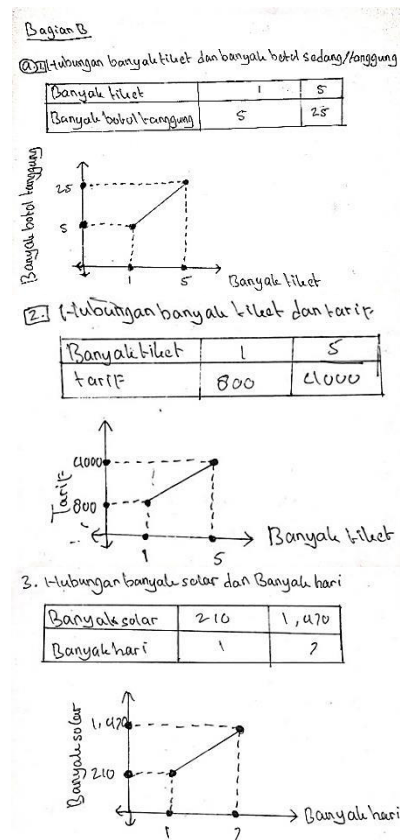 Bagian B
a 1 Hubungan banyak tiket dan banyak botol sedang/tanggung
Banyak tiket 1 5
Banyak botol tanggung 5 25
Banyak botol tanggung
25
5
1 5 Banyak tiket
2. Hubungan banyak tiket dan tarif
Banyak tiket 1 5
tarif 800 4000
Tarif
4000
800
1 5 Banyak tiket
3. Hubungan banyak solar dan Banyak hari
Banyak solar 210 1,470
Banyak hari 1 7
Banyak solar
1,470
210
1 7 Banyak hari